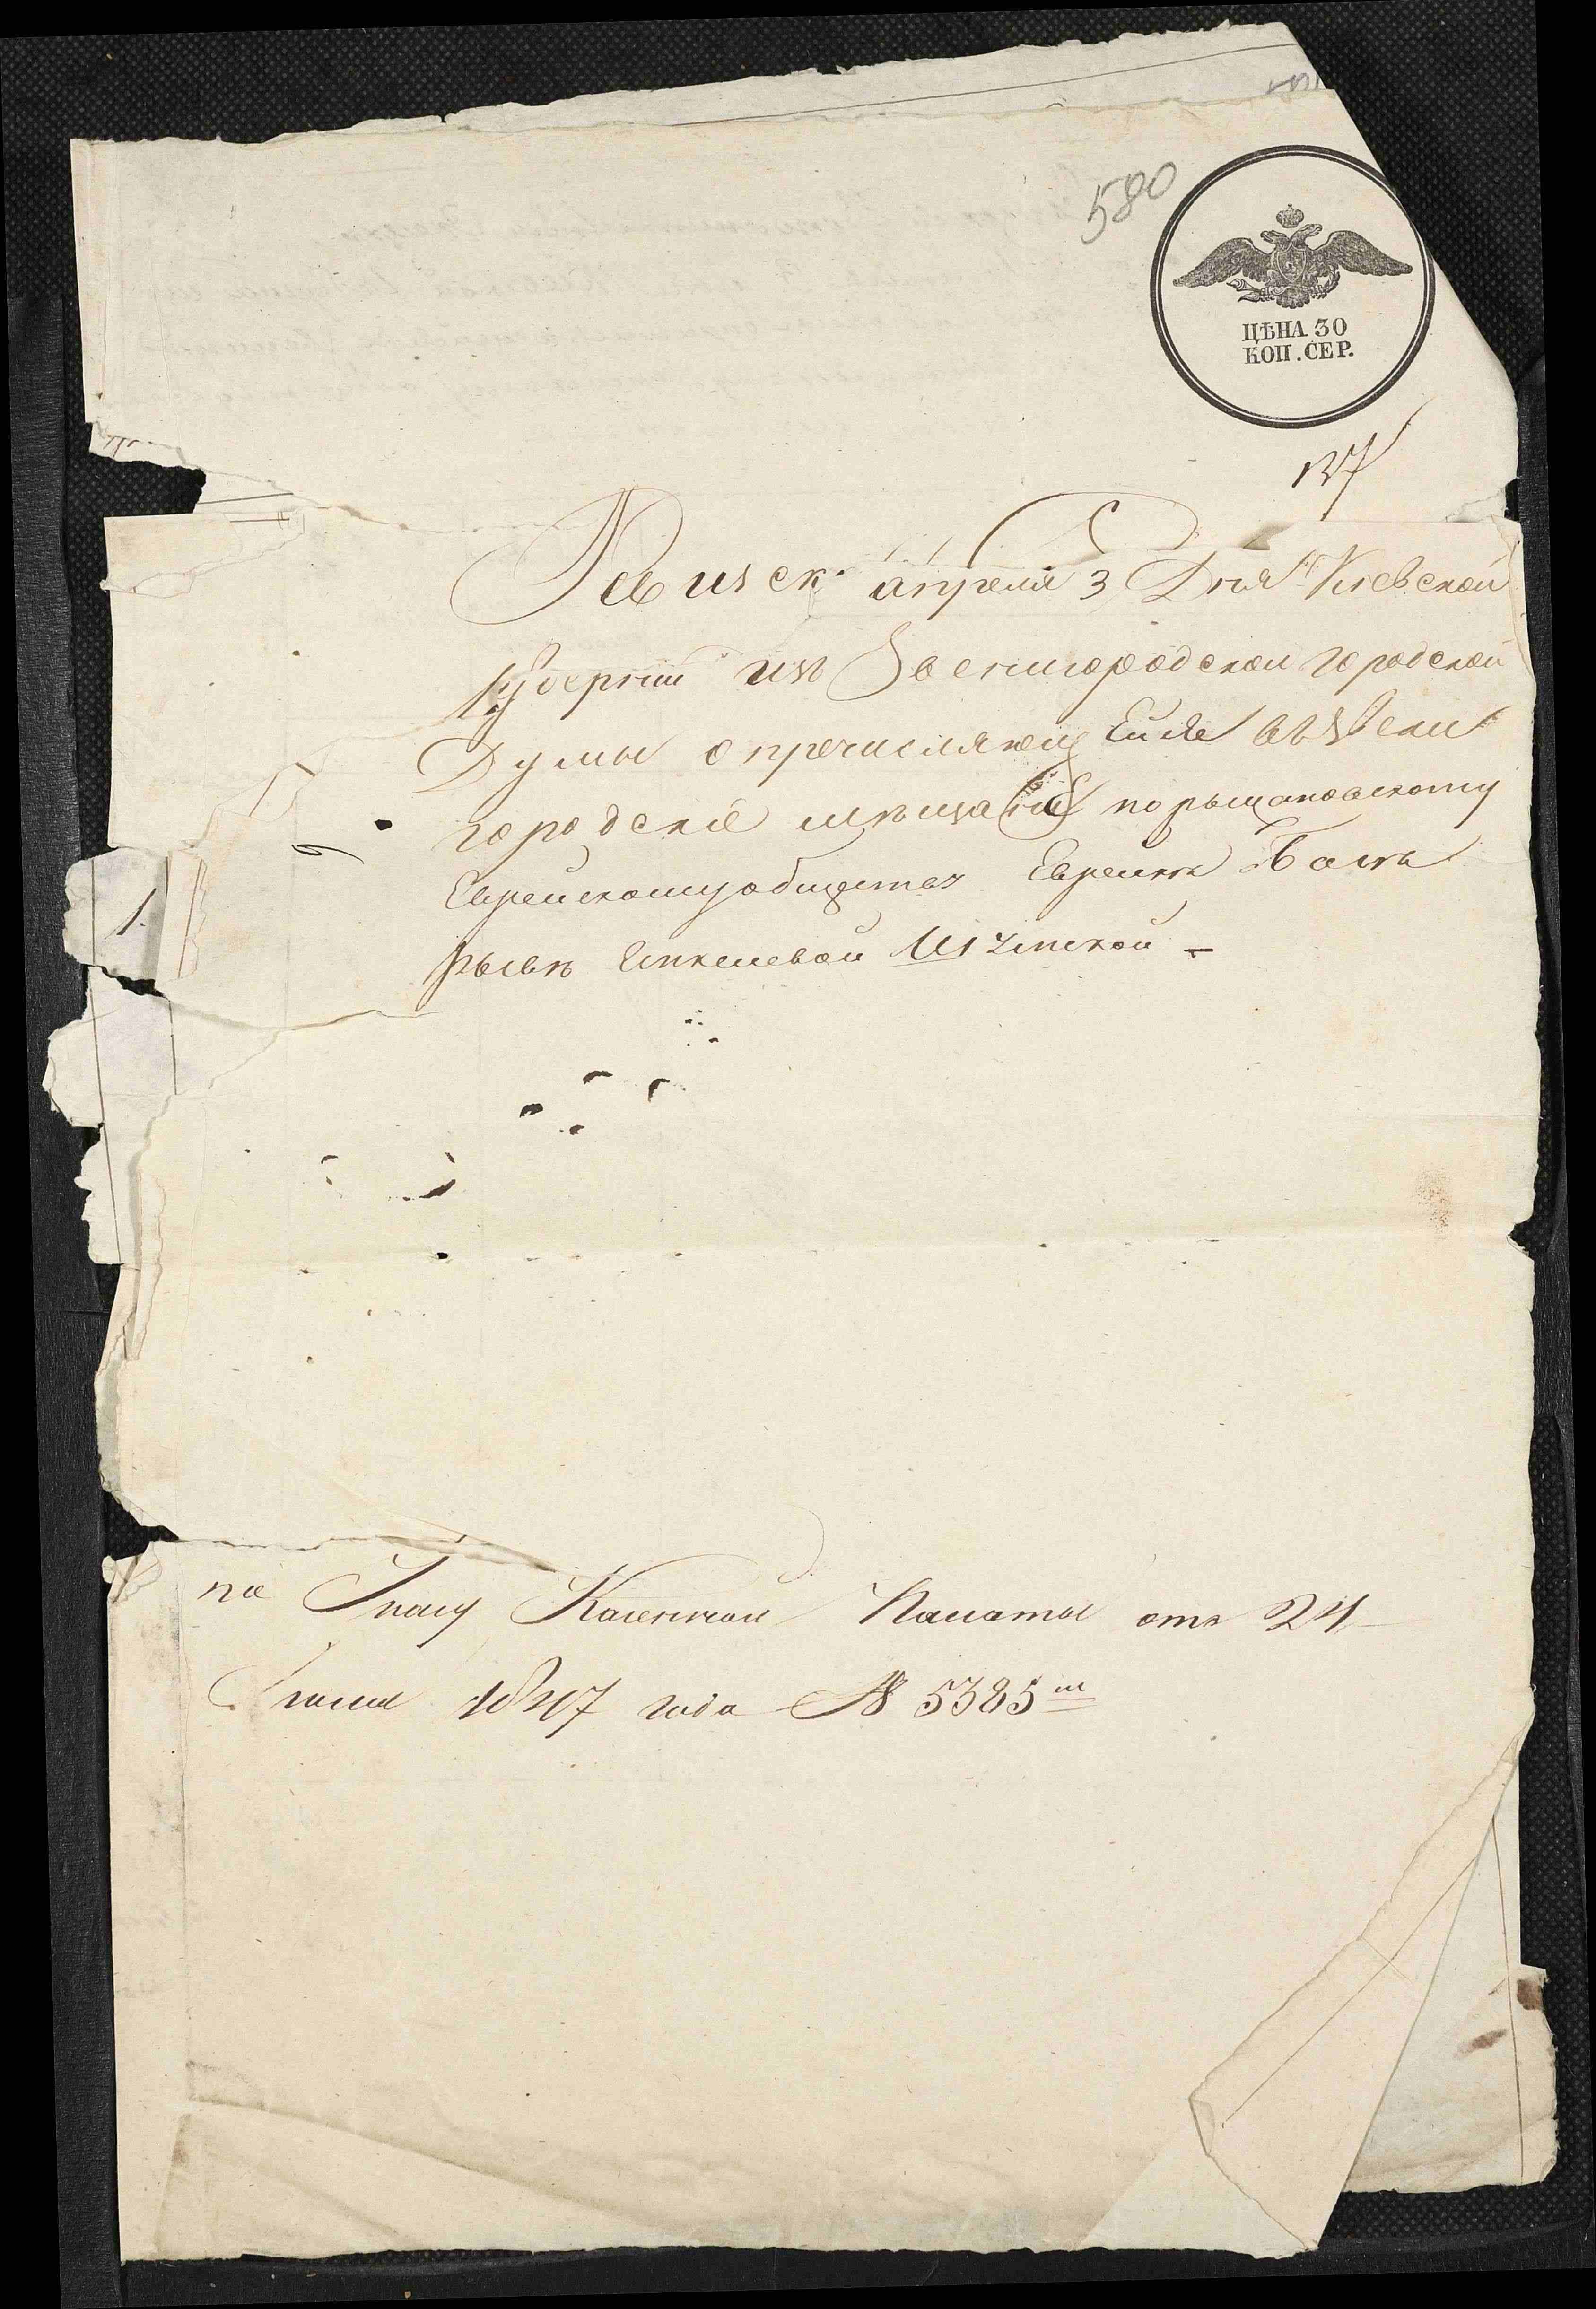 580
ЦѢНА 30
КОП. СЕР.
137
апреля 3 Дня Киевской
Губернии изъ Звенигородской городской
Думы о пречисляющейся въ Звени
городскіе мещане по рыщановскому
Еврейскому обществу Еврейки
1.
по Указу Казенной Палаты отъ 24
1847 года № 5385